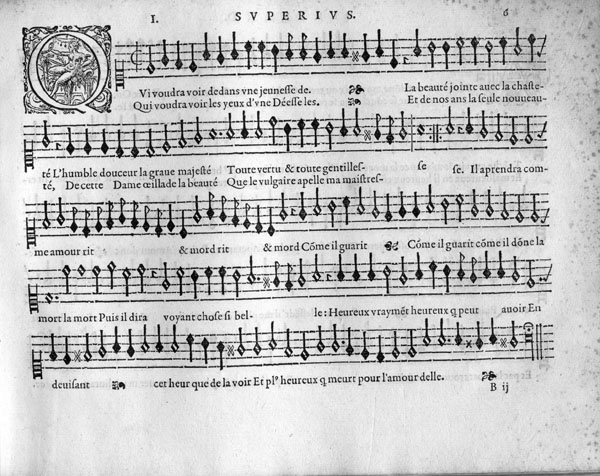 I. SVPERIVS. 6
QVi voudra voir dedans vne jeunesse de. La beauté jointe auec la chaste-
Qui voudra voir les yeux d'vne Déesse les. Et de nos ans la seule nouueau-
té L'humble douceur la graue majesté Toute vertu & toute gentilles- se se. Il aprendra com-
té, De cette Dame œillade la beauté Que le vulgaire apelle ma maistres-
me amour rit & mord rit & mord Cõme il guarit Cõme il guarit cõme il dõne la
mort la mort Puis il dira voyant chose si bel- le : Heureux vraymẽt heureux q peut auoir En
deuisant cet heur que de la voir Et plꝰ heureux q meurt pour l'amour delle.
B ij